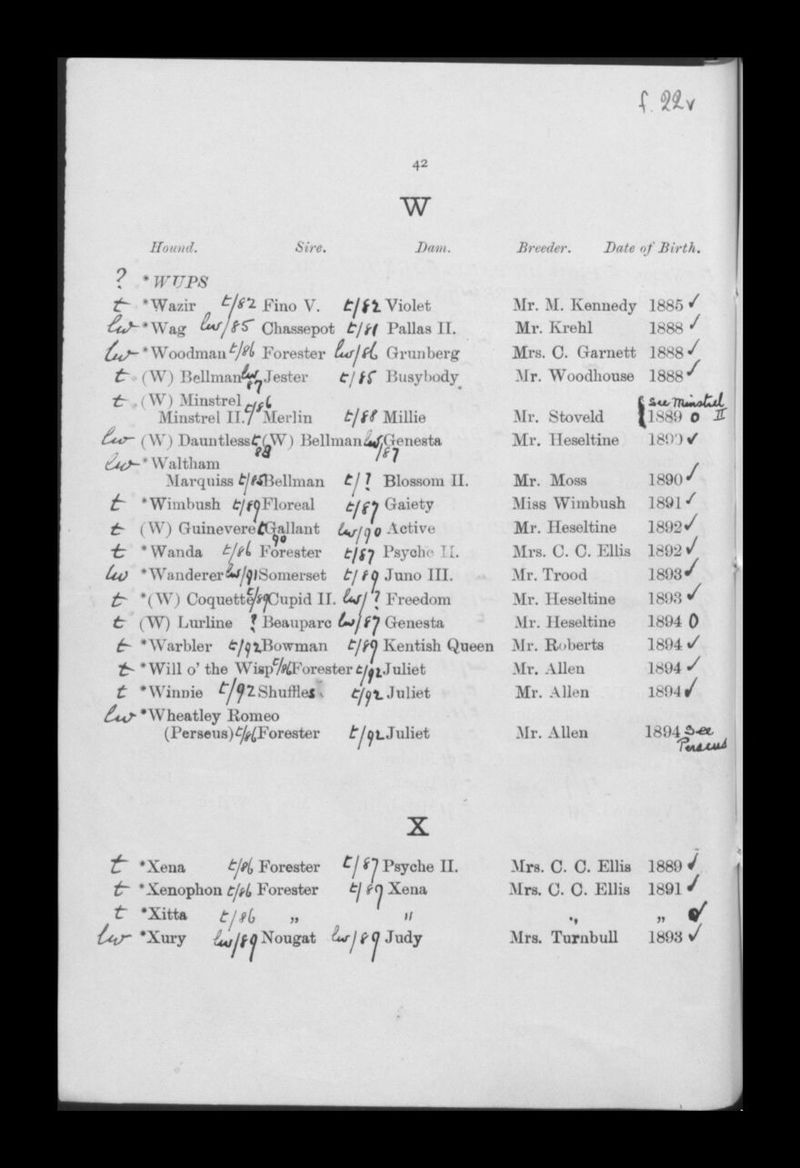 f. 22v
42
W
Hound. Sire. Dam. Breeder. Date of Birth.
? *WUPS
t *Wazir t/82 Fino V. t/82 Violet Mr. M. Kennedy 1885 ✓
lw *Wag lw/85 Chassepot t/81 Pallas II. Mr. Krehl 1888 ✓
lw *Woodman t/86 Forester lw/86 Grunberg Mrs. C. Garnett 1888 ✓
t (W) Bellman lw/87 Jester t/85 Busybody Mr. Woodhouse 1888 ✓
t (W) Minstrel see Minstrel II
Minstrel II. t/86 Merlin t/88 Millie Mr. Stoveld { 1889 o
lw (W) Dauntless t/88 (W) Bellman lw/87 Genesta Mr. Heseltine 1890 ✓
lw *Waltham
Marquiss t/85 Bellman t/? Blossom II. Mr. Moss 1890 ✓
t *Wimbush t/89 Floreal t/87 Gaiety Miss Wimbush 1891 ✓
t (W) Guinevere t/90 Gallant lw/90 Active Mr. Heseltine 1892 ✓
t *Wanda t/86 Forester t/87 Psyche II. Mrs. C. C. Ellis 1892 ✓
lw *Wanderer lw/91 Somerset t/89 Juno III. Mr. Trood 1893 ✓
t *(W) Coquette t/89 Cupid II. lw/? Freedom Mr. Heseltine 1893 ✓
t (W) Lurline ? Beauparc lw/87 Genesta Mr. Heseltine 1894 O
t *Warbler t/92 Bowman t/89 Kentish Queen Mr. Roberts 1894 ✓
t *Will o' the Wisp t/86 Forester t/92 Juliet Mr. Allen 1894 ✓
t *Winnie t/92 Shuffles t/92 Juliet Mr. Allen 1894 ✓
lw *Wheatley Romeo
(Perseus) t/86 Forester t/92 Juliet Mr. Allen 1894 See Perseus
X
t *Xena t/86 Forester t/87 Psyche II. Mrs. C. C. Ellis 1889 ✓
t *Xenophon t/86 Forester t/89 Xena Mrs. C. C. Ellis 1891 ✓
t *Xitta t/86 „ " „ „ ✓
lw *Xury lw/89 Nougat lw/89 Judy Mrs. Turnbull 1893 ✓